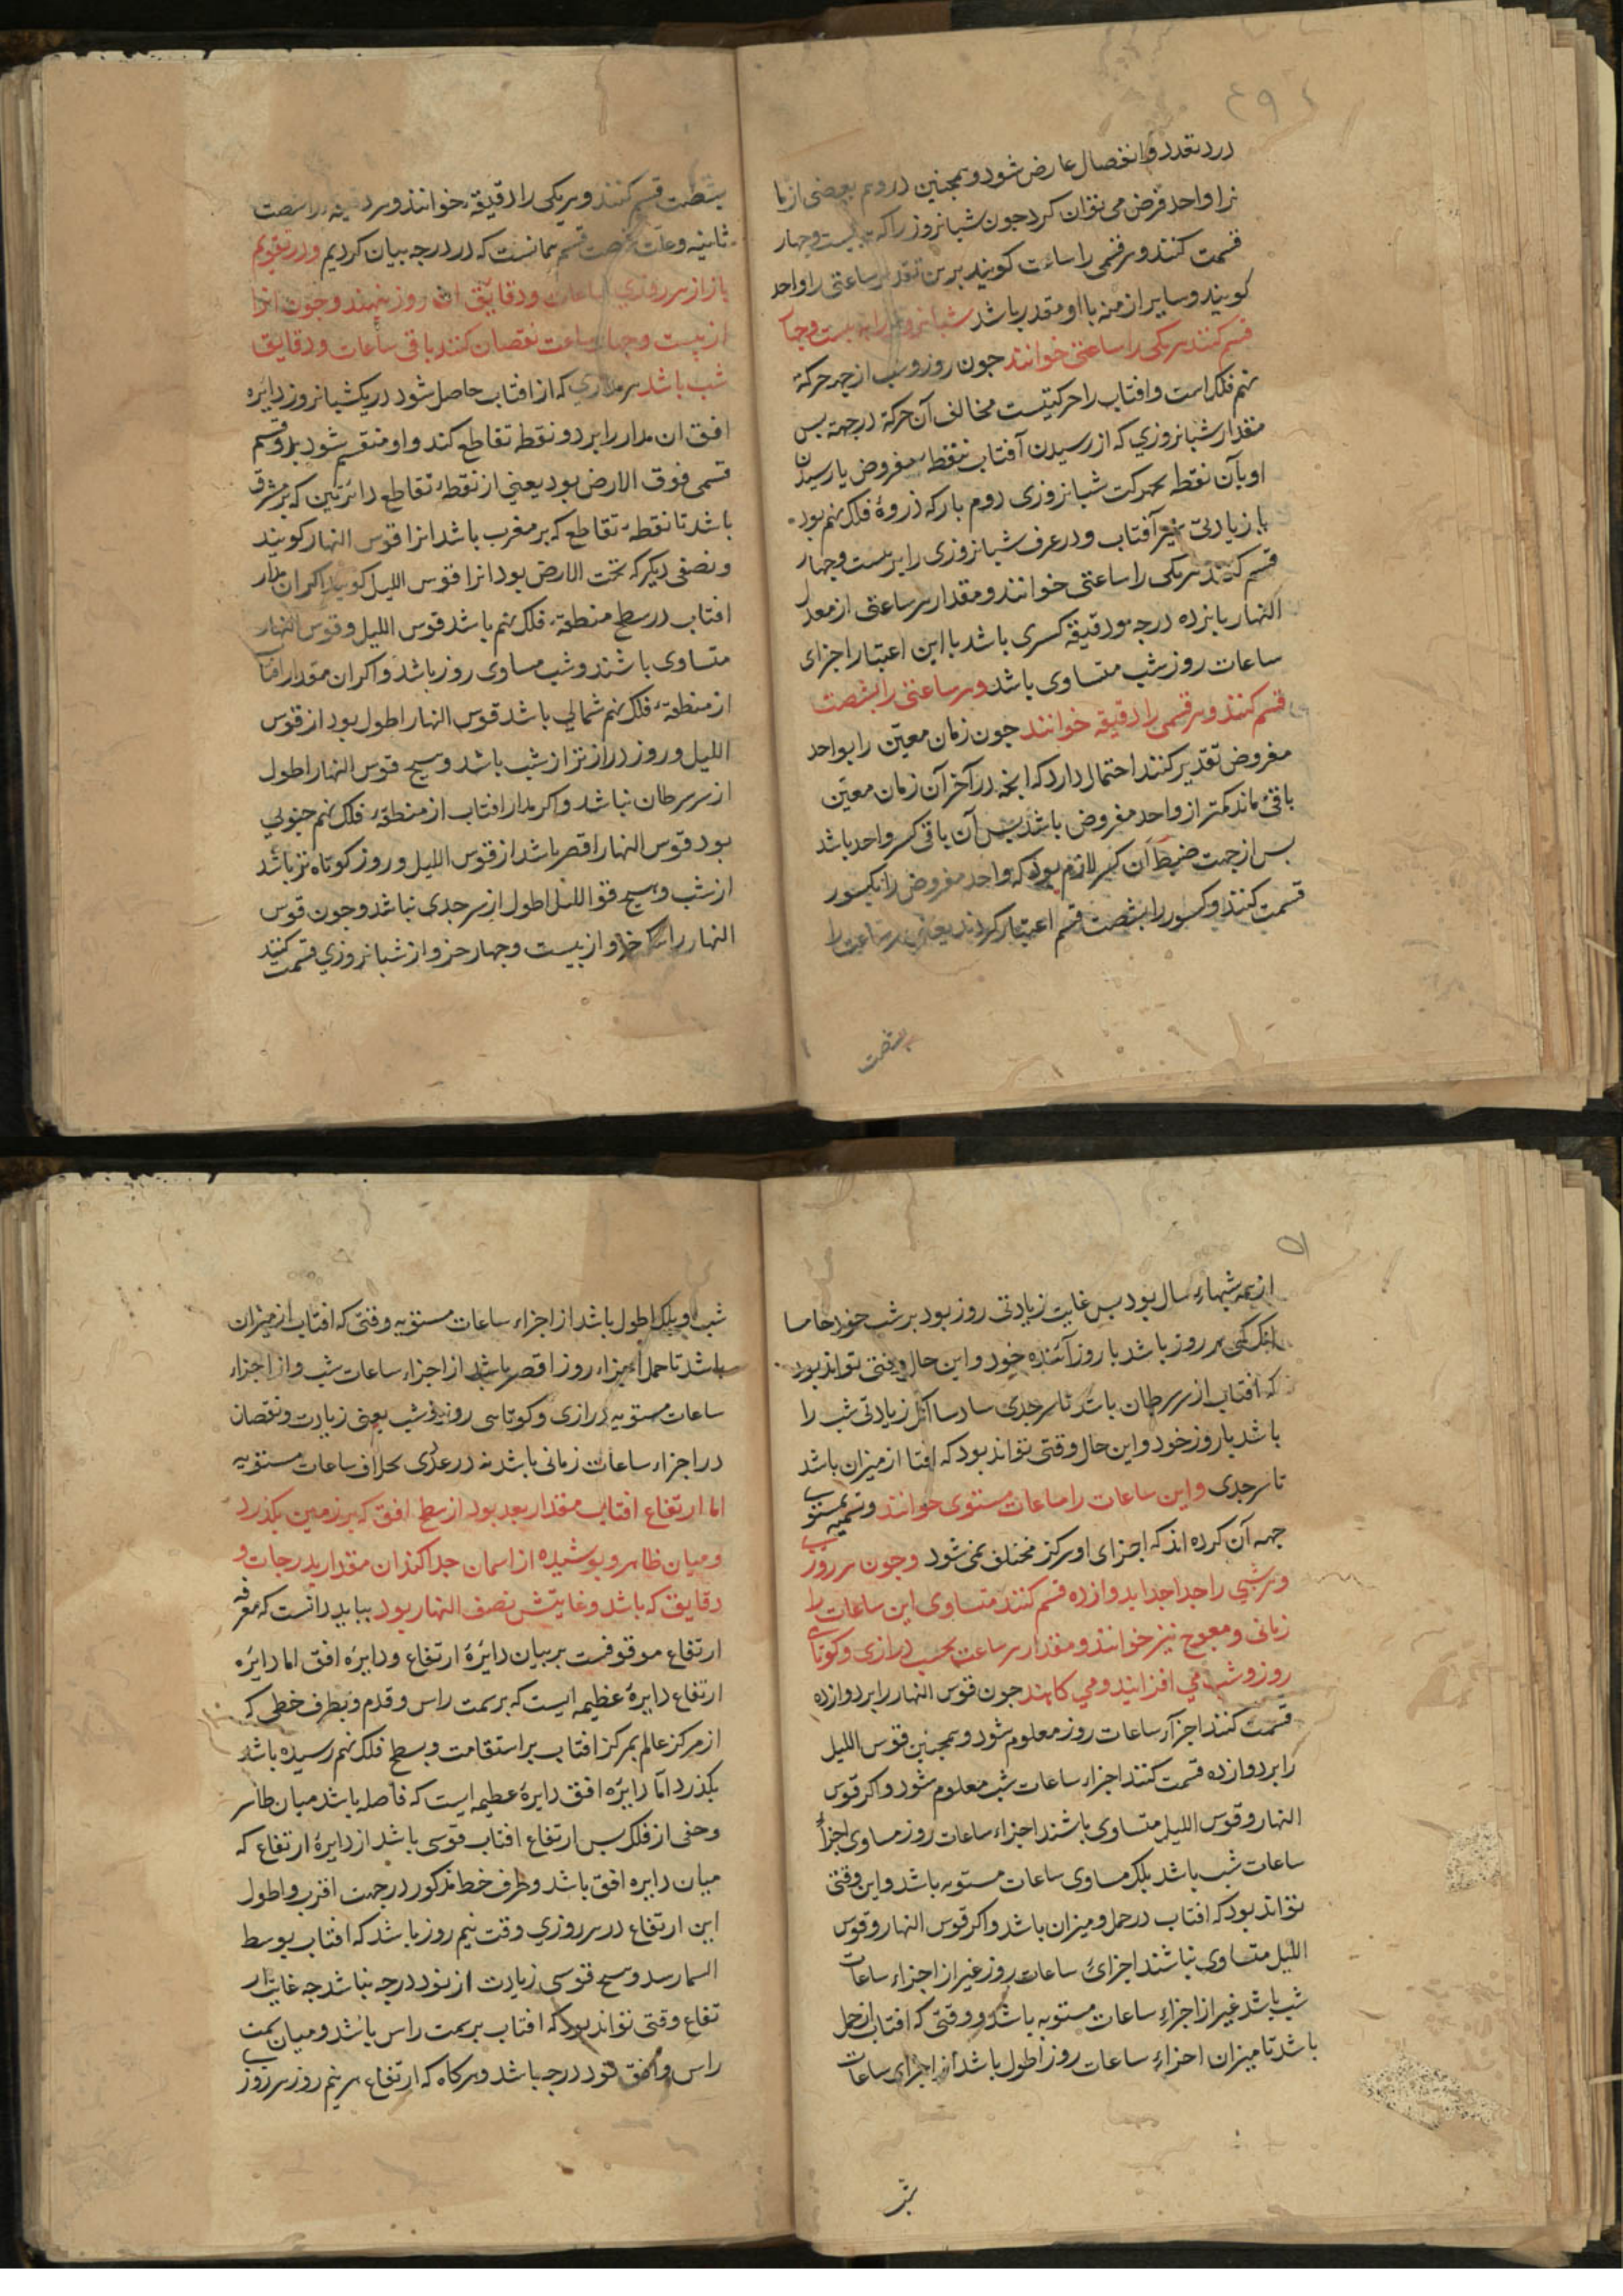 ۴۹
درد تعدد و انفصال عارض شود و همچنین در وهم بعضی از ما
نرا واحد فرض می توان کرد جون شبانروز را که به بیست وجهار
قسمت کنند وهر قسمی را ساعت کویند برین تقدیر ساعتی را واحد
کویند و سایر ازمنه با او مقدر باشد شبانروز را به بیست وجها
قسم کنند هر یکی را ساعتی خوانند جون روز و شب از جهر حرکة
نهم فلک است وافتاب را حرکتیست مخالف آن حرکة در جهة بس
مقدار شبانروزی که از رسیدن آفتاب بنقطه مفروض با رسیدن
او بآن نقطه بحرکت شبانروزی دوم بار که دروهٔ فلک نهم بود
با زیادتی سیر آفتاب و در عرف شبانروزی را بر بیست وجهار
قسم کنند هر یکی را ساعتی خوانند و مقدار هر ساعتی از معدل
النهار بانزده درجه ودقیقه کسری باشد با این اعتبار اجزای
ساعات روز شب متساوی باشد وهر ساعتی را بشصت
قسم کنند وهر قسمی را دقیقه خوانند جون زمان معین را بواحد
مفروض تقدیر کنند احتمال دارد که انجه در آخر آن زمان معین
باقی ماند کمتر از واحد مفروض باشد بس آن باقی کسر واحد باشد
بس از جهت ضبط آن کسر لازم بود که واحد مفروض را بکسور
قسمت کنند و کسور را بشصت قسم اعتبار کردند یعنی هر ساعت را
بشصت
بشصت قسم کنند و هر یکی را دقیقه خوانند وهر دقیقه را شصت
ثانیه وعلت شصت قسم همانست که در درجه بیان کردیم ودر تقویم
بازاز هر روزی ساعات ودقایق ان روز نهند وجون انرا
از بیست وجهار ساعت نقصان کنند باقی ساعات ودقایق
شب باشد هر مداری که از افتاب حاصل شود در یکشبانروز دایره
افق ان مدار را بر دو نقطه تقاطع کند واو منقسم شود بدو قسم
قسمی فوق الارض بود یعنی از نقطهٔ تقاطع دائرتین که بر مشرق
باشد تا نقطهٔ تقاطع که بر مغرب باشد انرا قوس النهار کویند
ونصفی دیکر که تحت الارض بود انرا قوس اللیل کویند اکر ان مدار
افتاب در سطح منطقهٔ فلک نهم باشد قوس اللیل وقوس النهار
متساوی باشند وشب مساوی روز باشد واکر ان مقدار افتا
از منطقهٔ فلک نهم شمالی باشد قوس النهار اطول بود از قوس
اللیل وروز درازتر از شب باشد وهیج قوس النهار اطول
از سر سرطان نباشد واکر مدار افتاب از منطقهٔ فلک نهم جنوبی
بود قوس النهار اقصر باشد از قوس اللیل وروز کوتاه تر باشد
از شب وهیج قو اللیل اطول از سر جدی نباشد وجون قوس
النهار را واز بیست وجهار جزو از شبانروزی قسمت کنند
۵۱
از همه شبهاء سال بود بس غایت زیادتی روز بود بر شب خود خاصا
هر روز باشد با روز آئنده خود و این حال وقتی تواند بود
که افتاب از سر سرطان باشد تا سر جدی زیادتی شب را
باشد بار وزخود واین حال وقتی تواند بود که افتا از میزان باشد
تا سر جدی واین ساعات را ساعات مستوی خوانند وتسمیه بمستوی
جهه آن کرده اند که اجزای او هرکز مختلف نمی شود وجون هر روز
وهر شبی را جدا جدا بدوازده قسم کنند متساوی این ساعات را
زمانی ومعوج نیز خوانند ومقدار هر ساعت بحسب درازی وکوتاهی
روز وشب می افزایند ومی کاهند جون قوس النهار را بر دوازده
قسمت کنند اجزاء ساعات روز معلوم شود وهمجنین قوس اللیل
را بر دوازده قسمت کنند اجزاء ساعات شب معلوم شود واکر قوس
النهار وقوس اللیل متساوی باشند اجزاء ساعات روز مساوی اجزاء
ساعات شب باشد بلکه مساوی ساعات مستویه باشد واین وقتی
تواند بود که افتاب در حمل ومیزان باشد واکر قوس النهار وقوس
اللیل متساوی نباشند اجزائ ساعات روز غیر از اجزاء ساعات
شب باشد غیر از اجزاءِ ساعات مستویه باشد ووقتی که افتاب از حمل
باشد تا میزان اجزاءِ ساعات روز اطول باشد از اجزای ساعات
شب
شب وبلکه اطول باشد از اجزاء ساعات مستویه وقتی که افتاب از میزان
باشد تا حمل اجزاء روز اقصر باشد از اجزاء ساعات شب واز اجزاء
ساعات مستویه درازی وکوتاهی روز وشب یعنی زیادت ونقصان
در اجزاء ساعات زمانی باشد نه در عددی بخلاف ساعات مستویه
اما ارتفاع افتاب مقدار بعد بود از سطح افق که بر زمین بکذرد
ومیان ظاهر وبوشیده از اسمان جدا کند ان مقدار بدرجات و
دقایق که باشد وغایتش نصف النهار بود بباید دانست که معرفه
ارتفاع موقوفست بر بیان دایرهٔ ارتفاع ودایره افق اما دایرهٔ
ارتفاع دایرهٔ عظیمه ایست که بر سمت راس وقدم وبطرف خطی که
از مرکز عالم بمرکز افتاب بر استقامت وبسطح فلک نهم رسیده باشد
بکذرد امّا دایرهٔ افق دایرهٔ عظیمه ایست که فاصله باشد میان ظاهر
وخفی از فلک بس ارتفاع افتاب قوسی باشد از دایرهٔ ارتفاع که
میان دایره افق باشد وطرف خط مذکور در جهت اقرب واطول
این ارتفاع در هر روزی وقت نیم روز باشد که افتاب بوسط
السما رسد وهیج قوسی زیادت از نود درجه نباشد جه غایت ار
تفاع وقتی تواند بود که افتاب بر سمت راس باشد ومیان سمت
راس وافق نود درجه باشد وهرکاه که ارتفاع هر نیم روز هر روز